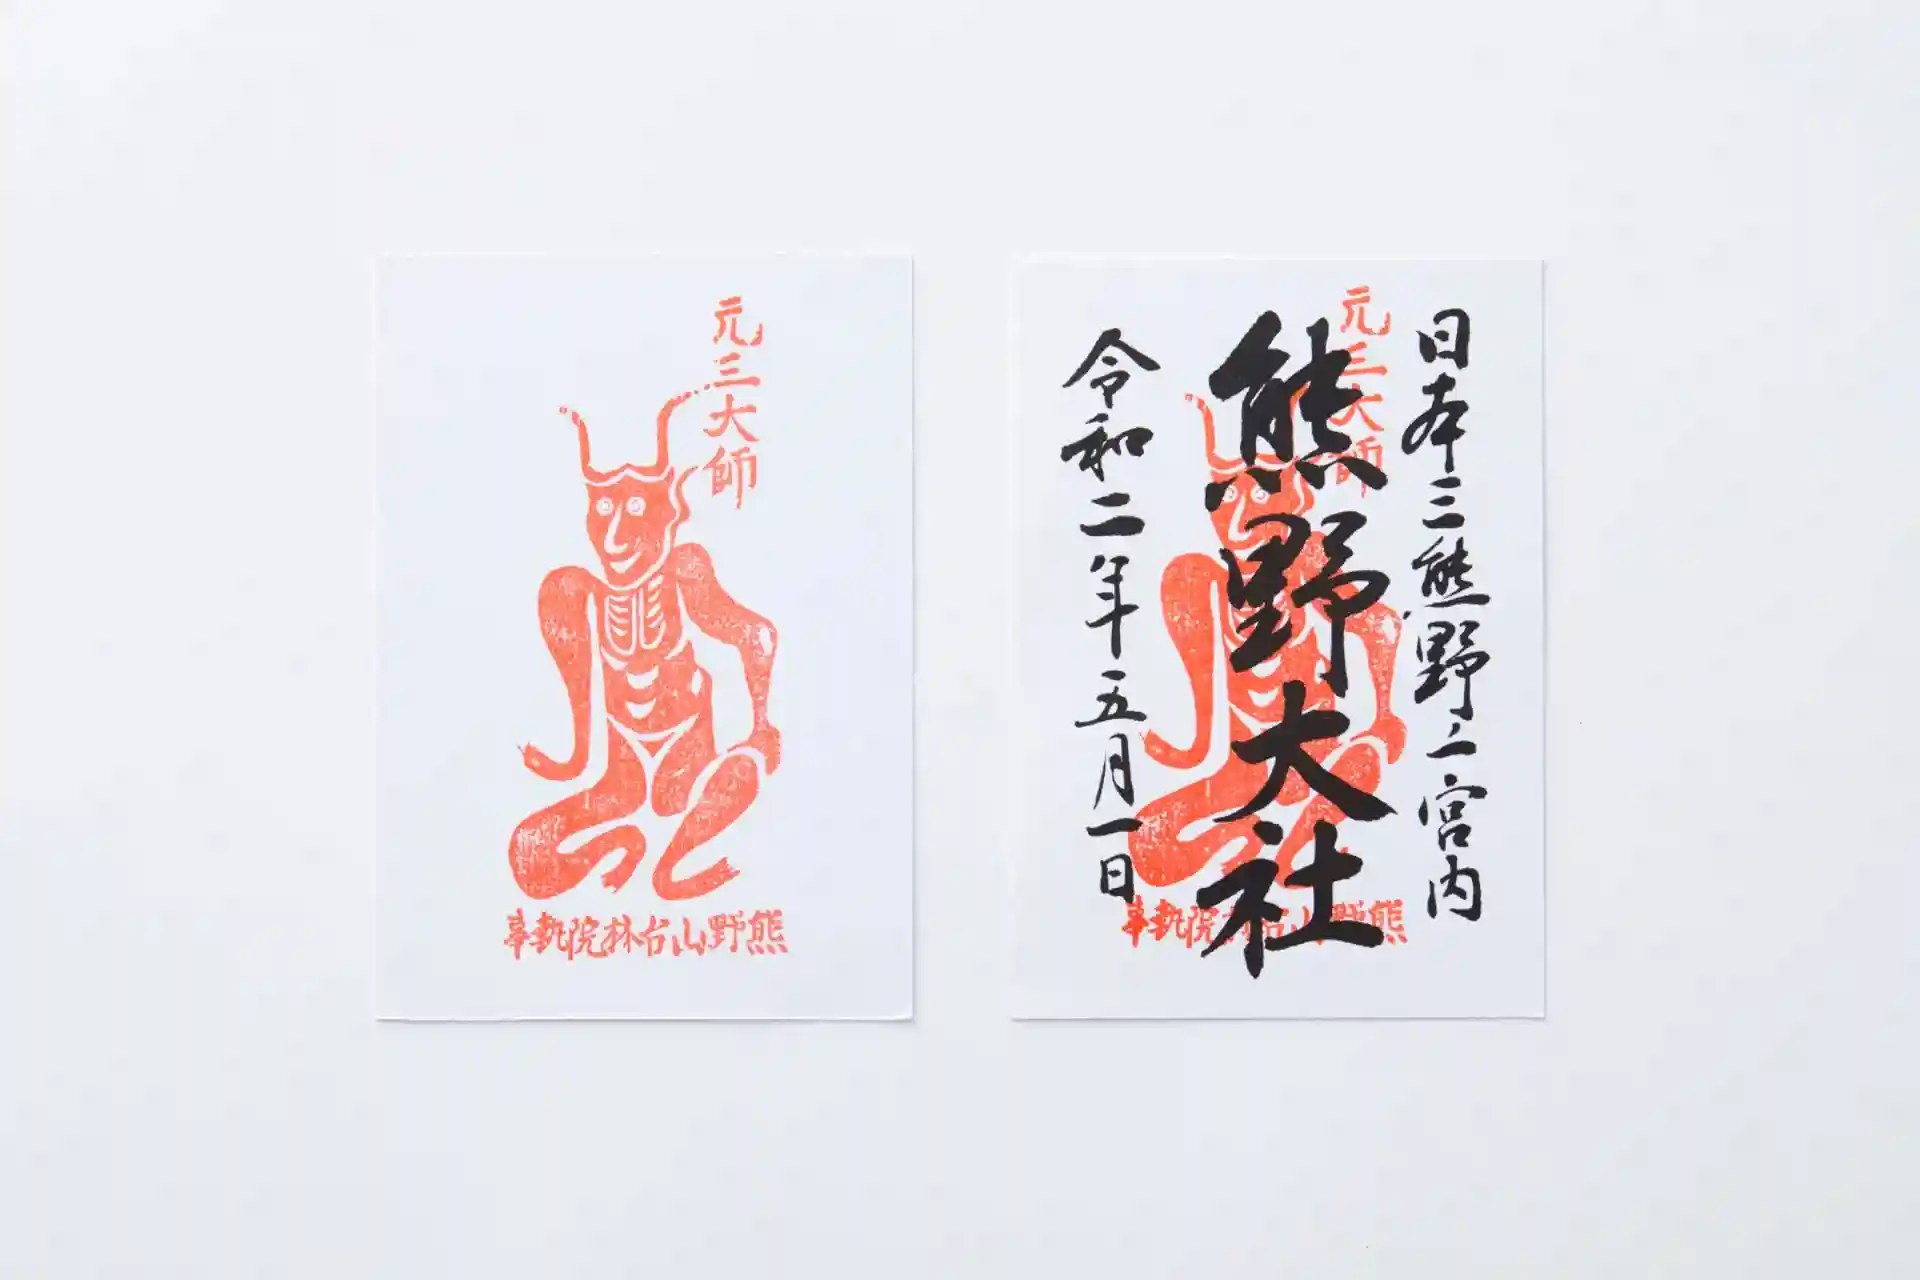 元三大師
熊野山台林院執事
日本三熊野ノ一宮内
熊野大社
令和二年五月一日
元三大師
熊野山台林院執事